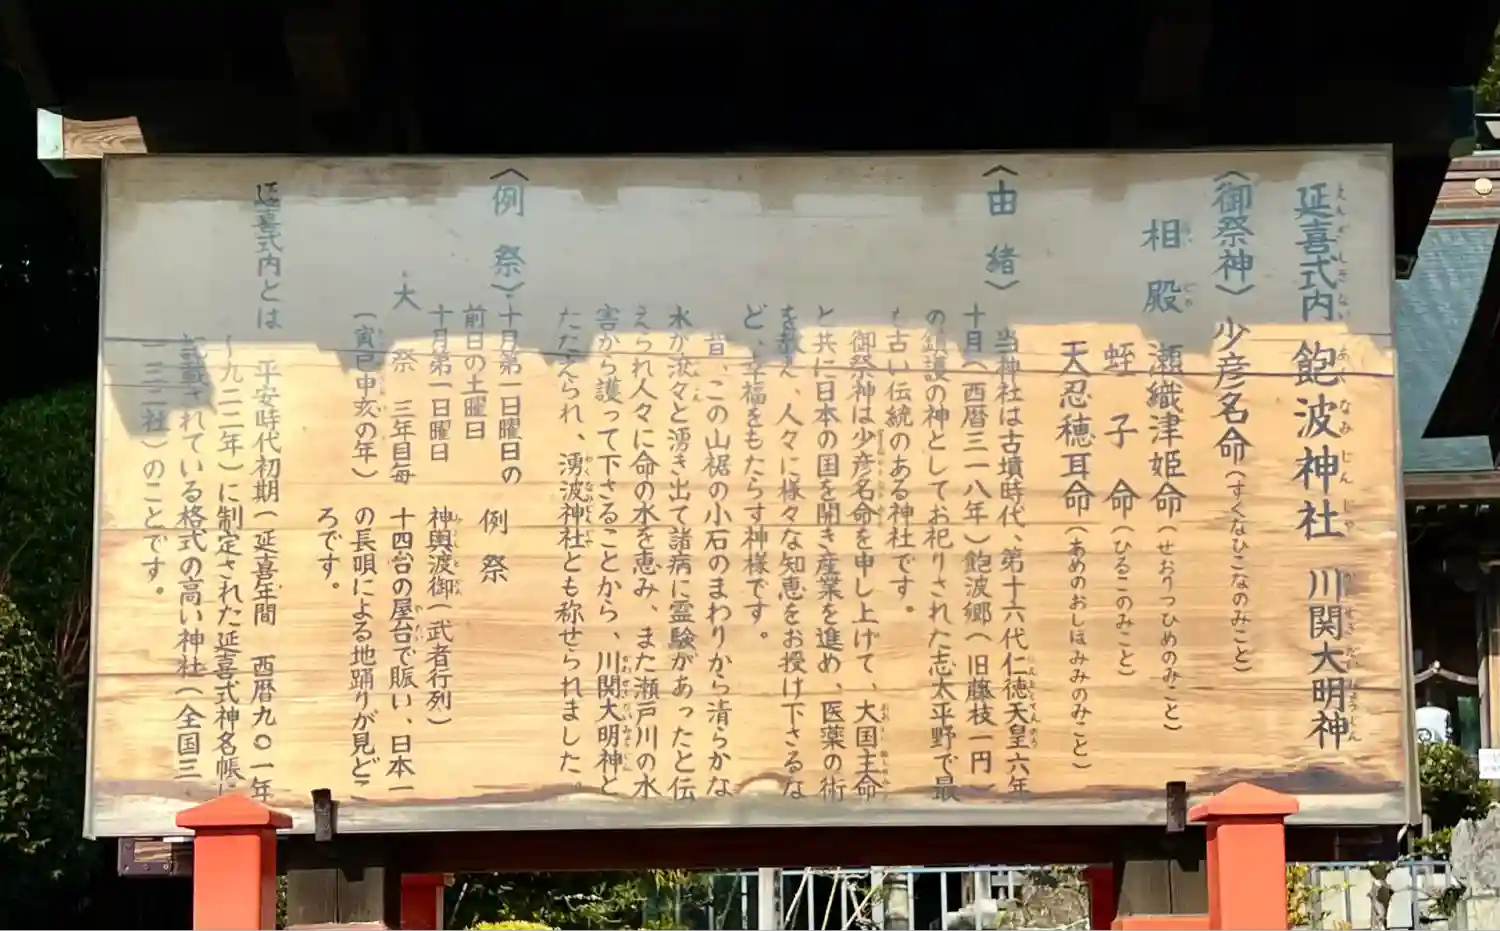 延喜式内 飽波神社 川関大明神
えんぎしきない あくなみじんじゃ かわせきだいみょうじん
〈御祭神〉 少彦名命(すくなひこなのみこと)
相殿 瀬織津姫命(せおりつひめのみこと)
あいどの
蛭子命(ひるこのみこと)
天忍穂耳命(あめのおしほみみのみこと)
〈由緒〉
当神社は古墳時代、第十六代仁徳天皇六年
十月(西暦三一八年)飽波郷(旧藤枝一円)
の鎮護の神としてお祀りされた志太平野で最
も古い伝統のある神社です。
御祭神は少彦名命を申し上げて、大国主命
と共に日本の国を開き産業を進め、医薬の術
を教え、人々に様々な知恵をお授け下さるな
ど、幸福をもたらす神様です。
昔、この山裾の小石のまわりから清らかな
水が滾々と湧き出て諸病に霊験があったと伝
えられ人々に命の水を恵み、また瀬戸川の水
害から護って下さることから、川関大明神と
たたえられ、湧波神社とも称せられました。
〈例祭〉
十月第一日曜日の
前日の土曜日 例祭
十月第一日曜日 神輿渡御(武者行列)
大祭 三年目毎 十四台の屋台で賑い、日本一
(寅巳申亥の年) の長唄による地踊りが見どこ
ろです。
延喜式内とは 平安時代初期(延喜年間 西暦九〇一年
~九二二年)に制定された延喜式神名帳に
記載されている格式の高い神社(全国三、
一三二社)のことです。